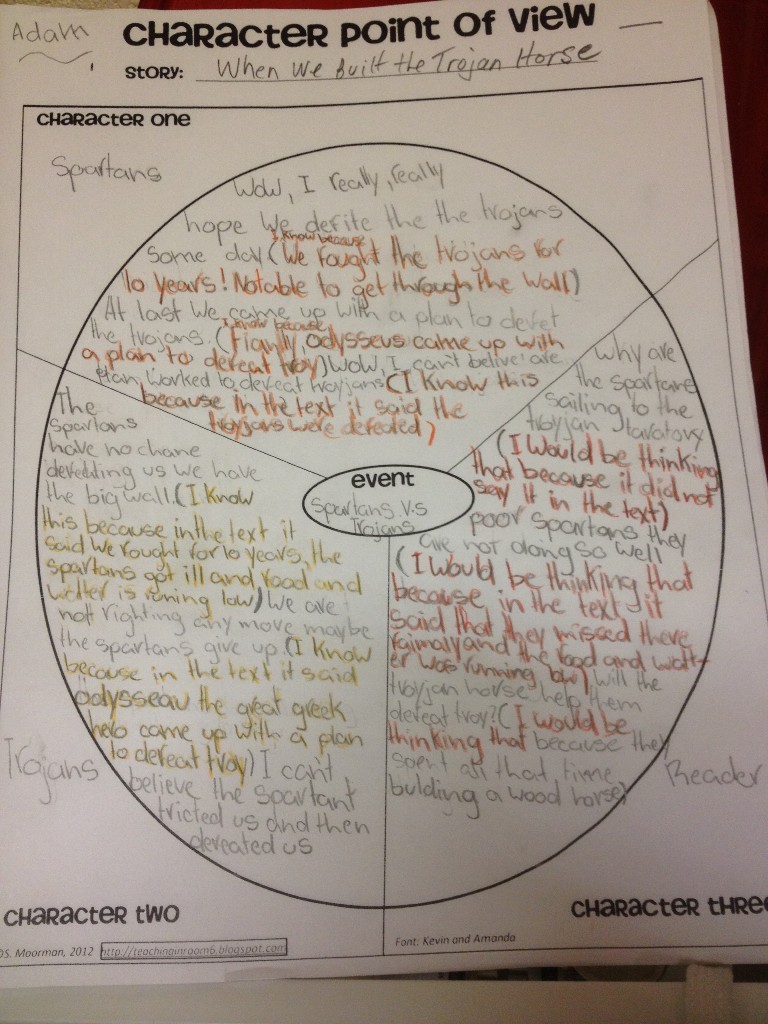 Adam
CHARACTER POINT OF VIEW
STORY: When We Built the Trojan Horse
CHARACTER ONE
Spartans
Wow, I really, really
hope We defite the the trojans
Some day (I know because We fought the trojans for
10 years! Notable to get through the wall)
At last We came up with a plan to defet
the trojans. (I know because Fianlly, odysseus came up with
a plan to defeat troy) Wow, I can't belive are
plan, worked to defeat troyjans (I Know this
because In the text it said the
troyjans were defeated)
The
Spartans
have no chane
defedting us we have
the big wall. (I Know
this because in the text it
said we fought for 10 years, the
spartans got ill and food and
watter is runing low) We are
not fighting any move maybe
the spartans give up. (I Know
because in the text it said
odysseau the great greek
hero came up with a plan
to defeat troy) I can't
believe the Spartant
tricted us and then
defeated us
Trojans
CHARACTER TWO
EVENT
Spartans V.S
Trojans
Why are
the spartans
sailing to the
troyjan
(I Would be thinking
that because it did not
say it in the text)
poor Spartans they
are not doing so well
(I would be thinking that
because in the text it
said that they missed there
and the food and watt-
er was running low) will the
troyjan horse help them
defeat troy? (I would be
thinking that because they
spent all that time
bulding a wood horse)
Reader
CHARACTER THREE
©S. Moorman, 2012 http://teachinginroom6.blogspot.com
Font: Kevin and Amanda